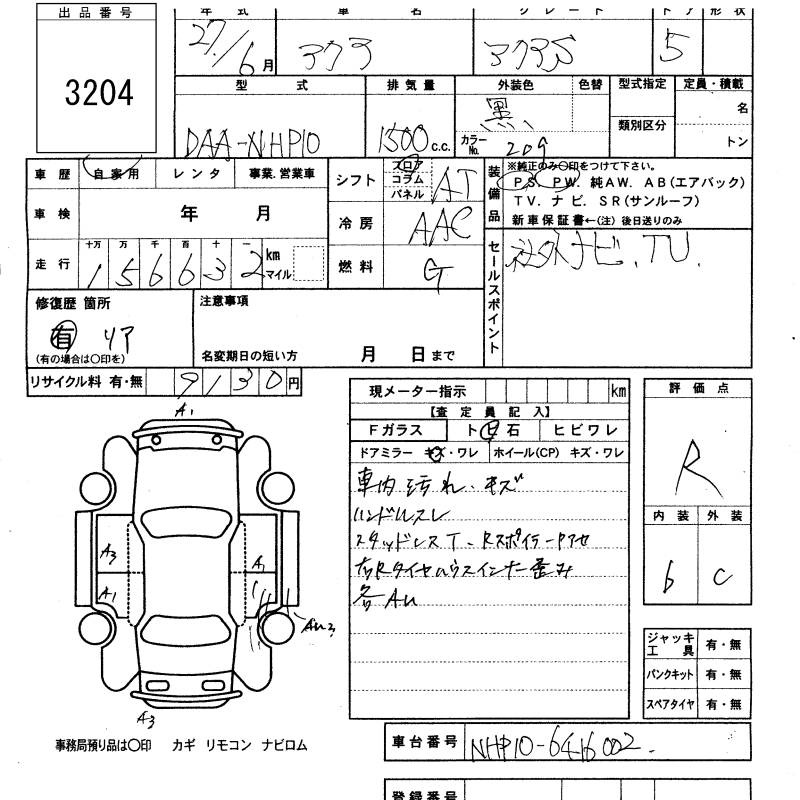 出品番号
3204
年式 車名 グレード ドア 形状
27/6月 アクア アクアS 5
型式 排気量 外装色 色替 型式指定 定員・積載
類別区分
DAA-NHP10 1500 c.c. 黒 カラーNo. 209 名 トン
車歴 自家用 レンタ 事業.営業車
シフト フロア コラム パネル AT
装備品
※純正のみ○印をつけて下さい。
P S. P W. 純AW. AB(エアバック)
TV. ナビ. SR(サンルーフ)
新車保証書←(注) 後日送りのみ
車検 年 月
冷房 AAC
走行 十万 万 千 百 十 一 km マイル
156632
燃料 G
セールスポイント
社外ナビ、TV
修復歴 箇所
有 リア
(有の場合は○印を)
注意事項
名変期日の短い方 月 日まで
リサイクル料 有・無 9130円
現メーター指示 km
【査定員記入】
Fガラス トビ石 ヒビワレ
ドアミラー キズ・ワレ ホイール(CP) キズ・ワレ
車内汚れ、キズ
ハンドルスレ
スタッドレスT、Rスポイラー
右Rタイヤハウスインナー歪み
各AU
評価点
R
内装 外装
b C
A1
A3
A1
A1
AU3
A3
ジャッキ工具 有・無
パンクキット 有・無
スペアタイヤ 有・無
事務局預り品は○印 カギ リモコン ナビロム
車台番号 NHP10-6416002.
登録番号